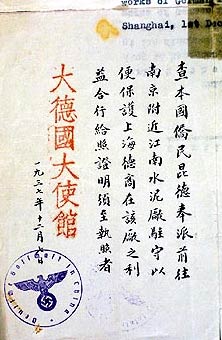 works of German
Shanghai, 1st De
查本國僑民昆德奉派前往
南京附近江南水泥廠駐守以
便保護上海德商在該廠之利
益合行給照證明須至執照者
大德國大使館
一九三七年十二月七日
Deutsche Botschaft in China